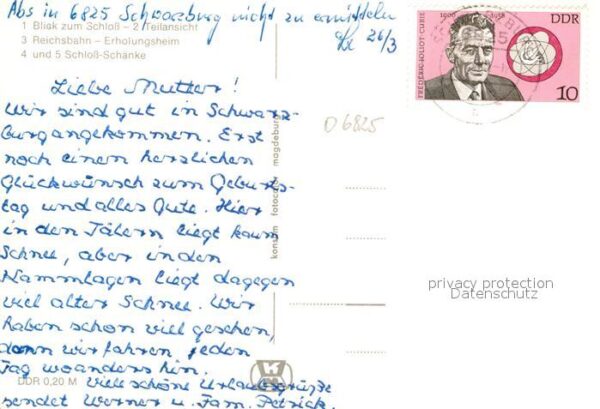 Abs in 6825 Schwarzburg nicht zu ermitteln
26/3
1 Blick zum Schloß - 2 Teilansicht
3 Reichsbahn - Erholungsheim
4 und 5 Schloß-Schänke
Liebe Mutter!
Wir sind gut in Schwarz-
burg angekommen. Erst
noch einen herzlichen
Glückwünsch zum Geburts-
tag und alles Gute. Hier
in den Tälern liegt kaum
Schnee, aber in den
Kammlagen liegt dagegen
viel alter Schnee. Wir
haben schon viel gesehen,
denn wir fahren jeden
Tag woanders hin.
Viele schöne Urlaubsgrüße
sendet Werner u. Fam. Petrick.
DDR 0,20 M
konsum fotocolor magdeburg
D 6825
FRÉDÉRIC JOLIOT-CURIE
1900 1958
DDR
10
privacy protection
Datenschutz